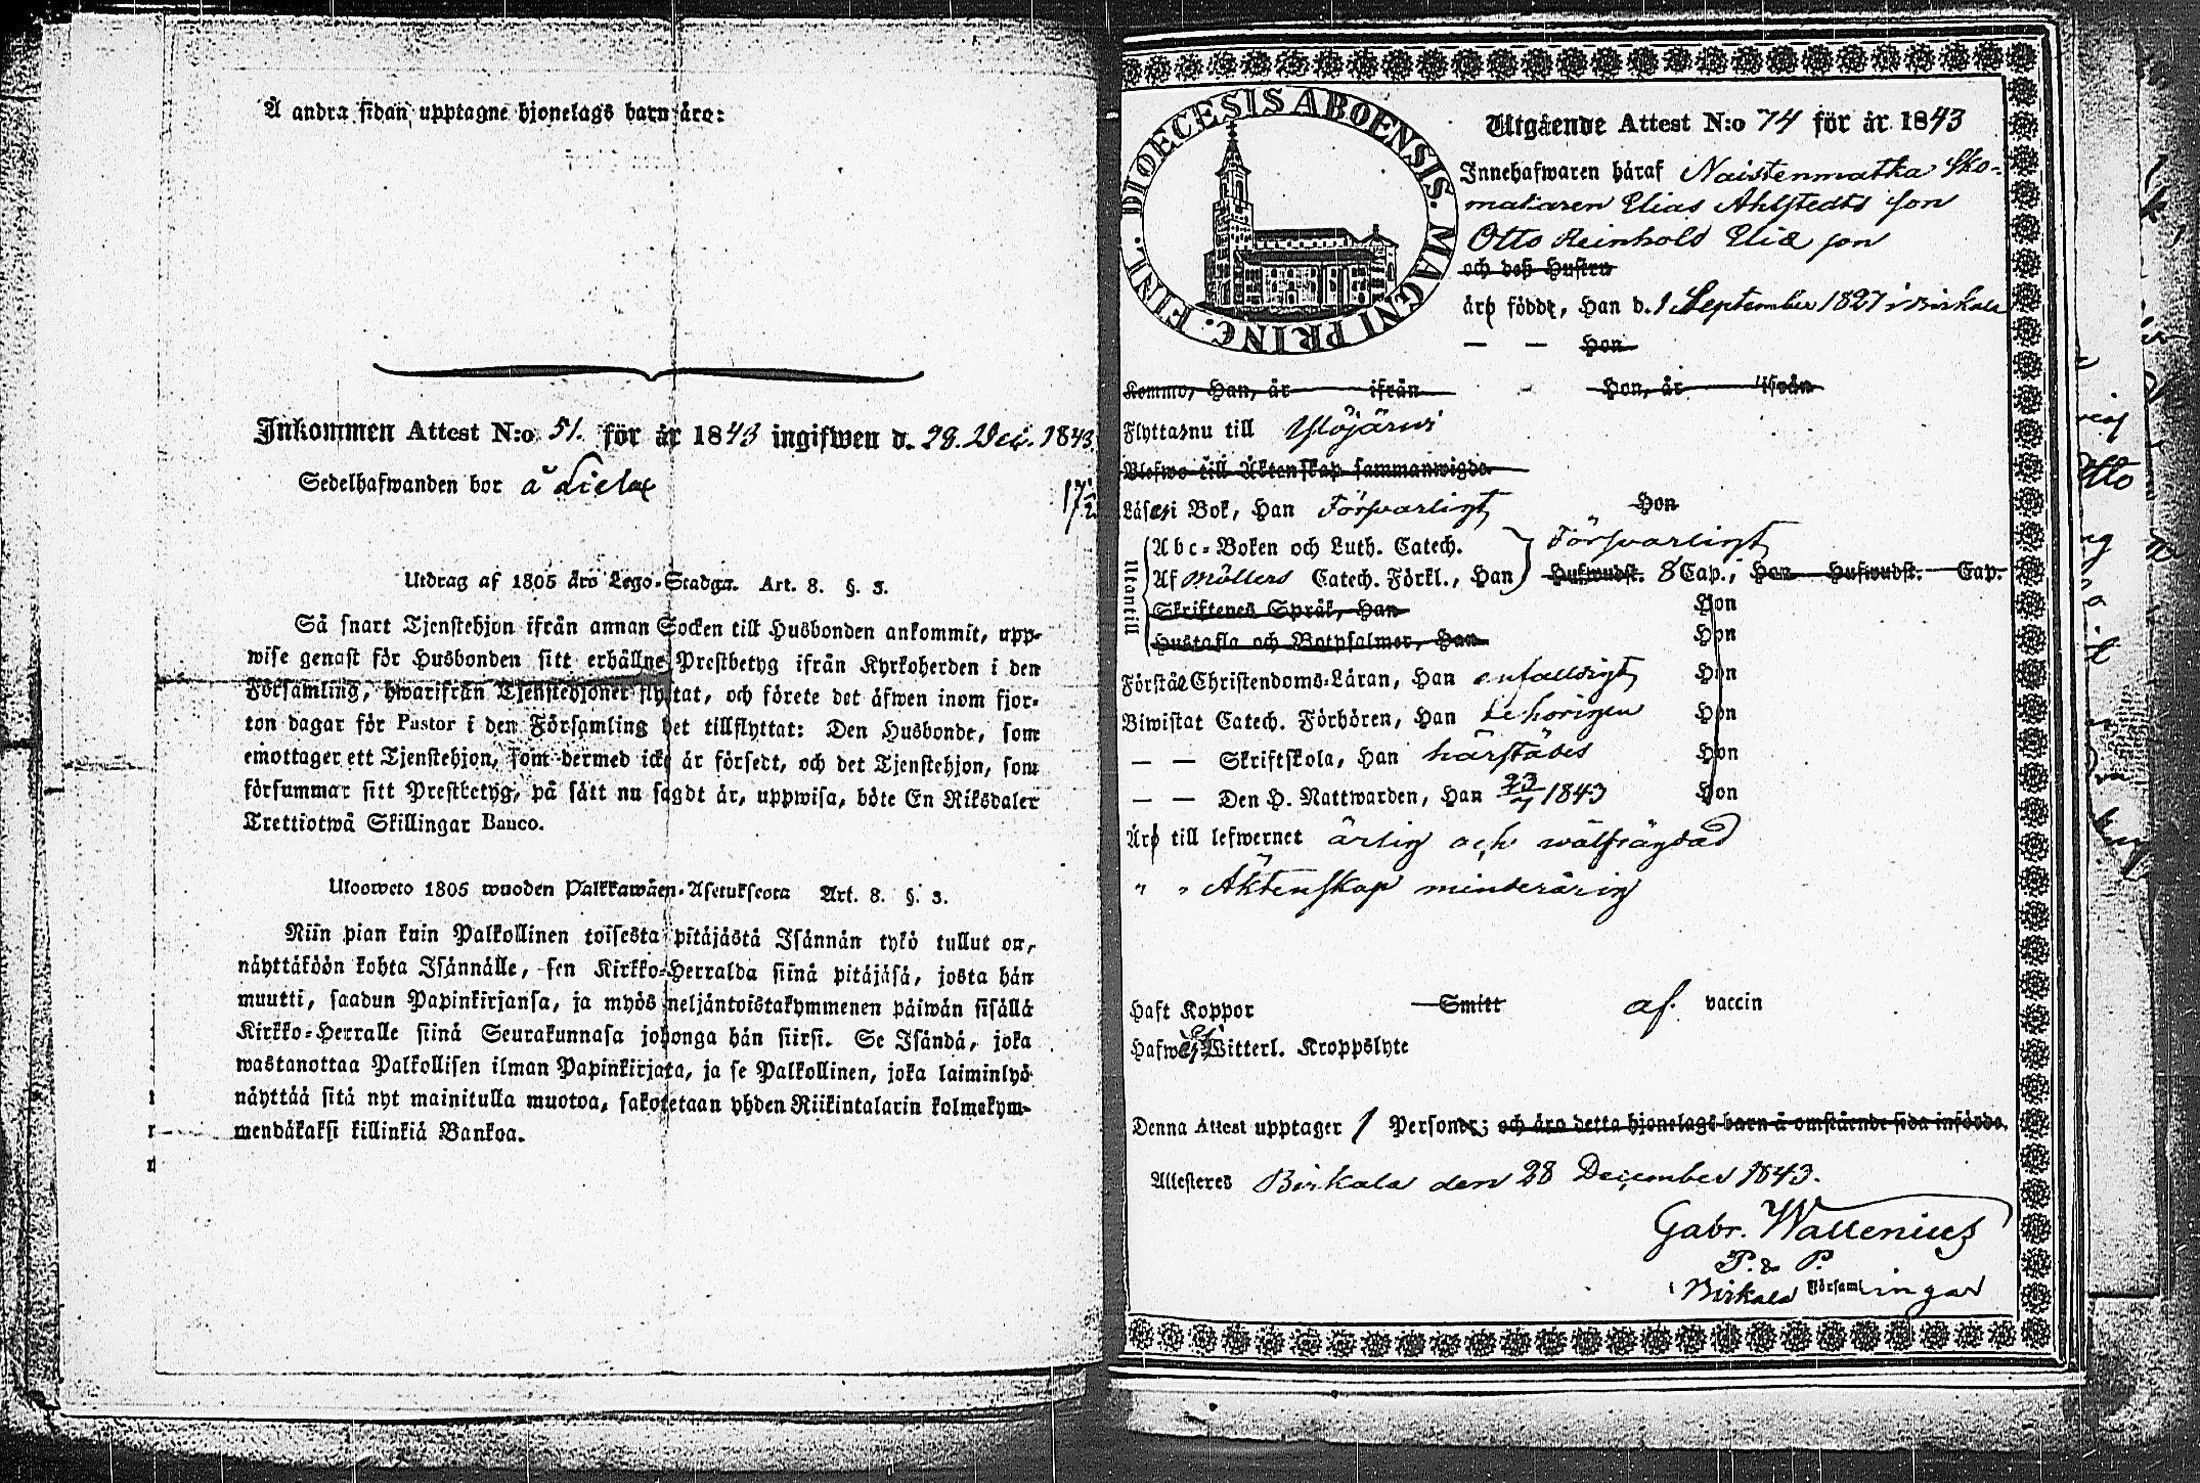 Å andra sidan upptagne hjonelags barn äro:
Inkommen Attest N:o 51. för år 1843 ingifwen d. 28. Dec. 1843.
Sedelhafwanden bor å Lielax
17 1/2
Utdrag af 1805 års Lego-Stadga. Art. 8. §. 3.
Så snart Tjenstehjon ifrån annan Socken till Husbonden ankommit, upp-
wise genast för Husbonden sitt erhållne Prestbetyg ifrån Kyrkoherden i den
Församling, hwarifrån Tjenstehjonet flyttat, och förete det äfwen inom fjor-
ton dagar för Pastor i den Församling det tillflyttat: Den Husbonde, som
emottager ett Tjenstehjon, som dermed icke är försedt, och det Tjenstehjon, som
försummar sitt Prestbetyg, på sätt nu sagdt är, uppwisa, böte En Riksdaler
Trettiotwå Skillingar Banco.
Uloosweto 1805 wuoden Palkkawäen-Asetuksesta Art. 8. §. 3.
Niin pian kuin Palkollinen toisesta pitäjästä Isännän tykö tullut on,
näyttäköön kohta Isännälle, sen Kirkko-Herralda siinä pitäjäsä, josta hän
muutti, saadun Papinkirjansa, ja myös neljäntoistakymmenen päiwän sisällä
Kirkko-Herralle siinä Seurakunnasa johonga hän siirsi. Se Isändä, joka
wastanottaa Palkollisen ilman Papinkirjata, ja se Palkollinen, joka laiminlyö
näyttää sitä nyt mainitulla muotoa, sakotetaan yhden Riikintalarin kolmekym-
mendäkaksi killinkiä Bankoa.
DIOECESIS ABOENSIS. MAGNI PRINC. FINL.
Utgående Attest N:o 74 för år 1843
Innehafwaren häraf Naistenmatka Sko-
makaren Elias Ahlstedts son
Otto Reinhold Eliæ son
och deß Hustru
äro födde, Han d. 1 September 1827 i Birkala
— — Hon
Kommo, Han, år ifrån Hon, år ifrån
Flytta nu till Ylöjärwi
Blefwo till Äktenskap sammanwigde
Läser i Bok, Han Försvarligt Hon
Utantill
Abc-Boken och Luth. Catech. Försvarligt
Af Möllers Catech. Förkl., Han Hufwudst. 8 Cap., Hon Hufwudst. Cap.
Skriftenes Språk, Han Hon
Hustafla och Botpsalmer, Han Hon
Förstår Christendoms-Läran, Han enfalldigt Hon
Biwistat Catech. Förhören, Han behörigen Hon
— — Skriftskola, Han härstädes Hon
— — Den H. Nattwarden, Han 23/7 1843 Hon
Äro till lefwernet ärlig och wälfrägdad
" " Äktenskap minderårig
Haft Koppor Smitt af vaccin
Hafwer Ej Witterl. Kroppslyte
Denna Attest upptager 1 Personer; och äro detta hjonelags barn å omstående sida införde.
Attesteres Birkala den 28 December 1843.
Gabr. Wallenius
P. & P.
i Birkala Församlingar